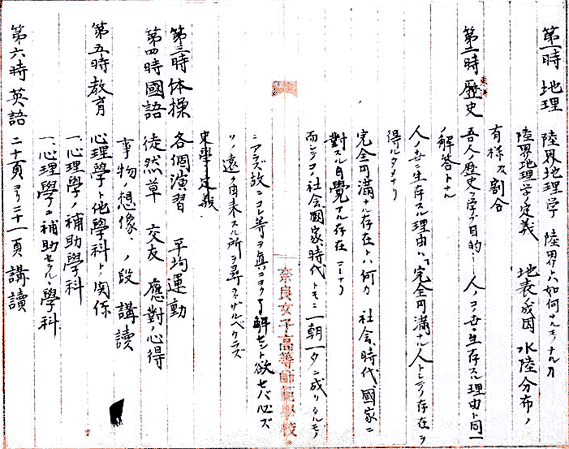 第一時 地理 陸界地理学 陸界トハ如何ナルモノナルカ
陸界地理学ノ定義 地表ノ成因 水陸分布ノ
有様及割合
第二時 歴史 吾人ノ歴史ヲ学ブ目的
人ノコノ世ニ生存スル理由ト同一
ノ解答トナル
人ノ世ニ生存スル理由ハ完全円満ナル人トシテノ存在ヲ
得ルタメナリ
完全円満ナル存在トハ何カ 社会、時代、國家ニ
對スル自覺アル存在ナリ
而シテコノ社会國家時代トモニ一朝一夕ニ成リタルモノ
ニアラズ故ニコレ等ヲ真ニヨリ了解セント欲セバ必ズ
ソノ遠ク由来スル所ヲ尋ネザルベカラズ
史學ノ定義
第三時 体操 各個演習 平均運動
第四時 國語 徒然草 交友 應對ノ心得
事物ノ想像、ノ段 講讀
第五時 教育 心理學ト他學科トノ関係
一、心理學ノ補助學科
一、心理學ヲ補助セル學科
第六時 英語 二十頁ヨリ二十一頁 講讀
奈良女子高等師範學校